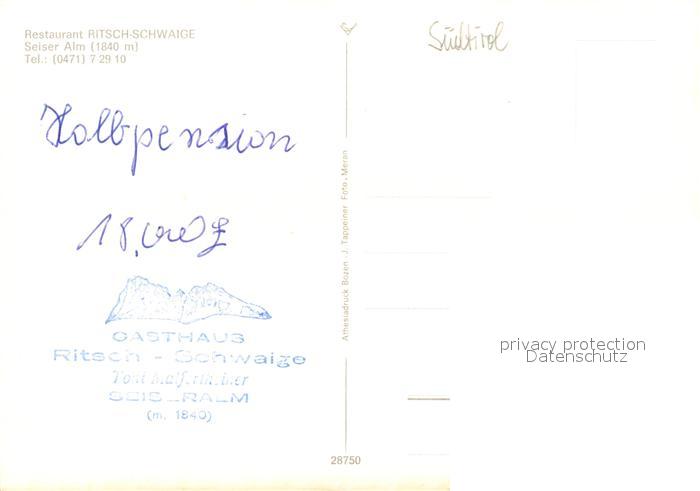 Restaurant RITSCH-SCHWAIGE
Seiser Alm (1840 m)
Tel.: (0471) 7 29 10
Südtirol
Halbpension
18.000 £
GASTHAUS
Ritsch - Schwaige
SEISERALM
(m. 1840)
Athesiadruck Bozen - J. Tappeiner Foto, Meran
28750
privacy protection
Datenschutz